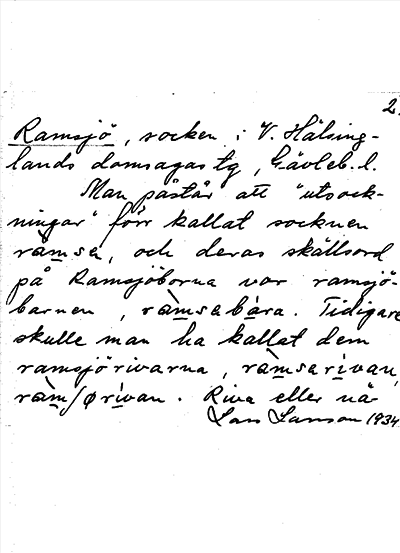 2.
Ramsjö, socken i V. Hälsing-
lands domsagas tg, Gävleb. l.
Man påstår att "utsock-
ningar" förr kallat socknen
ràmsa, och deras skällsord
på Ramsjöborna var ramsjö-
barnen, ràmsabára. Tidigare
skulle man ha kallat dem
ramsjörivarna, ràmsarìvan,
ràm/ørìvan. Riva eller nä-
Lars Larsson 1934.